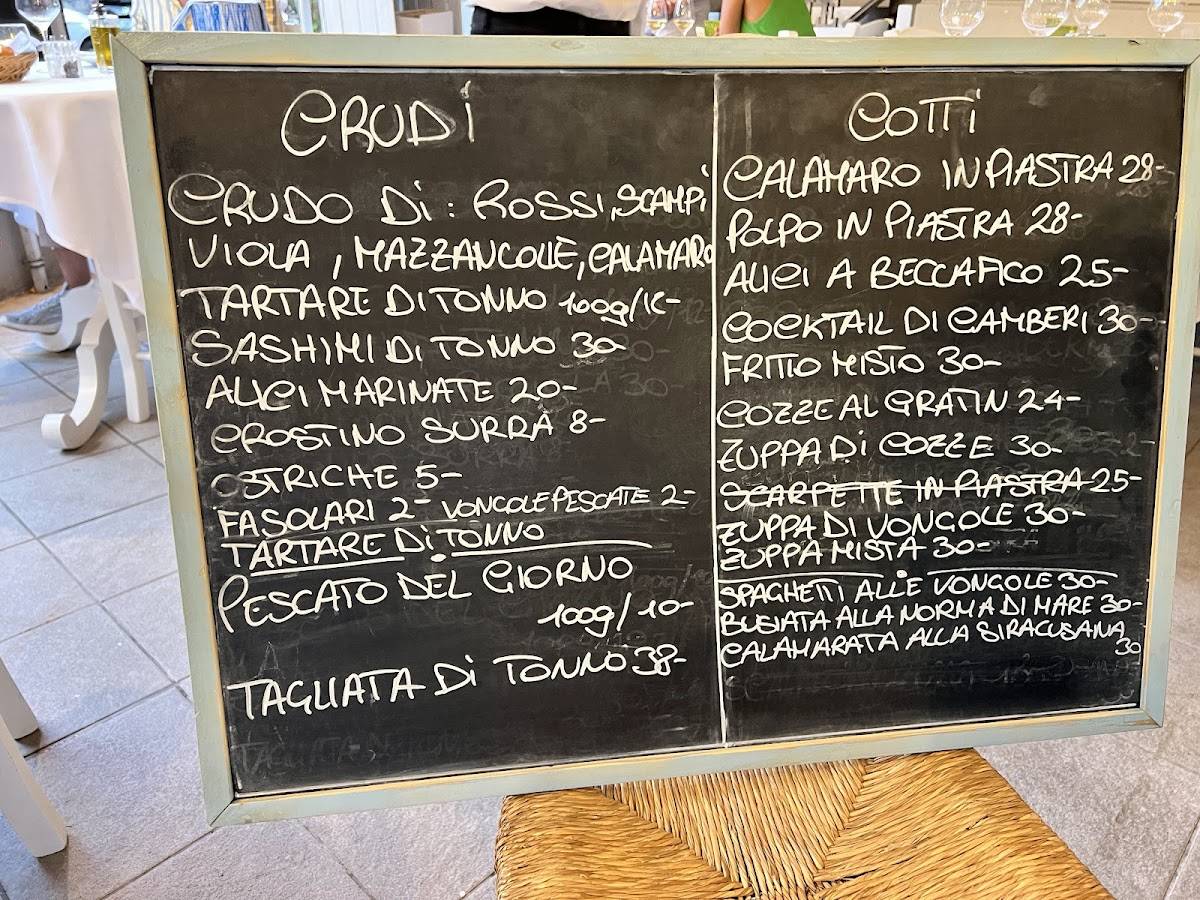 CRUDI
CRUDO DI: ROSSI, SCAMPI
VIOLA, MAZZANCOLLE, CALAMARO
TARTARE DI TONNO 100g/
SASHIMI DI TONNO 30-
ALICI MARINATE 20-
CROSTINO SURRA 8-
OSTRICHE 5-
FASOLARI 2- VONGOLE PESCATE 2-
TARTARE DI TONNO
PESCATO DEL GIORNO
100g/10-
TAGLIATA DI TONNO 38-
COTTI
CALAMARO IN PIASTRA 28-
POLPO IN PIASTRA 28-
ALICI A BECCAFICO 25-
COCKTAIL DI GAMBERI 30-
FRITTO MISTO 30-
COZZE AL GRATIN 24-
ZUPPA DI COZZE 30-
SCARPETTE IN PIASTRA 25-
ZUPPA DI VONGOLE 30-
ZUPPA MISTA 30-
SPAGHETTI ALLE VONGOLE 30-
BUSIATA ALLA NORMA DI MARE 30-
CALAMARATA ALLA SIRACUSANA
30